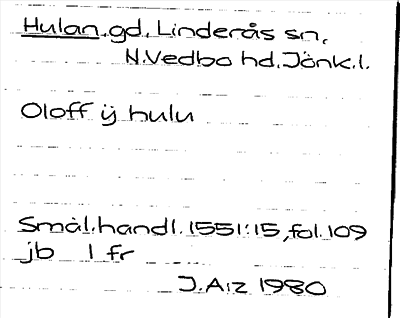 Hulan, gd, Linderås sn,
N.Vedbo hd. Jönk.l.
Oloff ÿ hulu
Smål.handl. 1551:15, fol. 109
jb 1 fr
J.A:z 1980